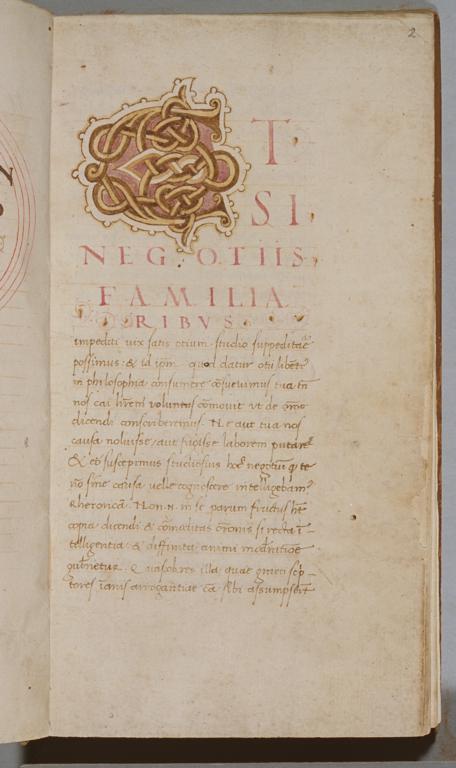 2
ET
SI
NEGOTIIS
FAMILIA
RIBVS
impediti vix satis otium studio suppeditare
possimus: & id ipm quod datur otii libēti
in philosophia consumere cōsuevimus tua tn̄
nos cai hreni voluntas cōmovit ut de rōne
dicendi conscriberemus. Ne aut tua nos
causa noluisse, aut fugisse laborem putares
& eo studiosius hoc negotium q te
nō sine causa velle cognoscere intelligebam
Rhetoricā. Non .n. in se parum fructus hēt
copia dicendi & cōmoditas orōnis si recta ī-
telligentia & diffinita animi moderatiōe
gubnetur. Quasobres illa quae greci scp-
tores inanis arrogantiae cā sibi assumpserūt